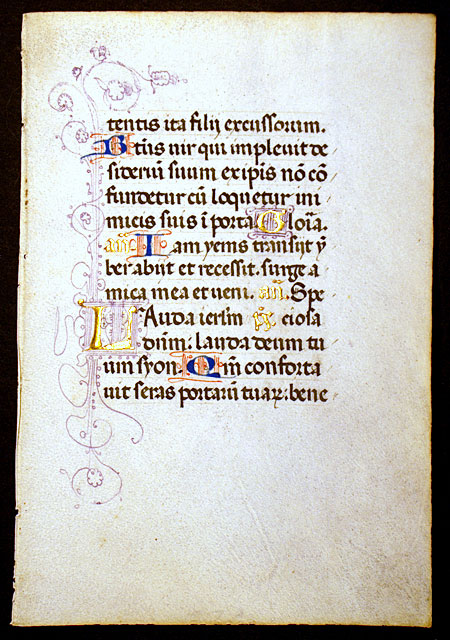 tentis ita filij excussorum.
Btũs uir qui impleuit de
siderium suum ex ipis nõ cõ
fundetur cũ loquetur ini
micis suis ĩ porta Gloĩa.
añ. Iam yems transijt ẏ
ber abijt et recessit. surge a
mica mea et ueni. añ. Spe
Lauda ierłm pṡ. ciosa
dñm: lauda deum tu
um syon. Qm̃ conforta
uit seras portarũ tuaꝝ: bene